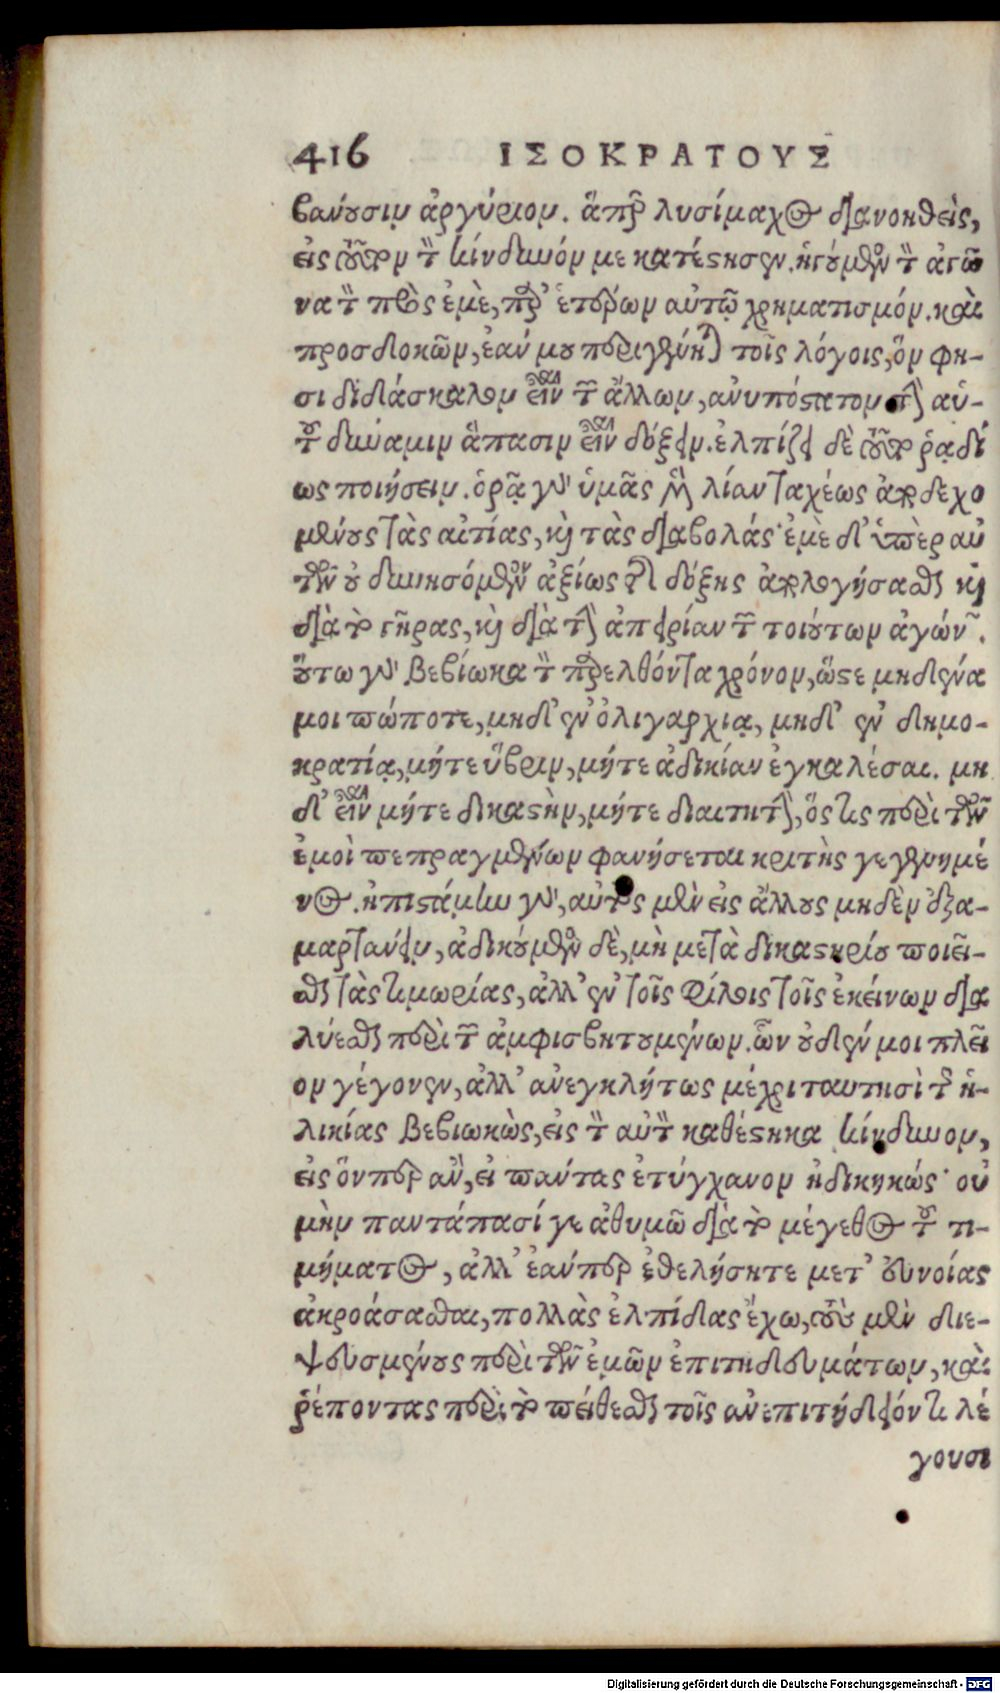 416 ΙΣΟΚΡΑΤΟΥΣ
βάνουσιν ἀργύριον. ἅπερ λυσίμαχος διανοηθεὶς,
εἰς τουτονὶ τὸν κίνδυνόν με κατέστησεν. ἡγούμενος τὸν ἀγῶ
να τὸν πρὸς ἐμὲ, παρ' ἑτέρων αὐτῷ χρηματισμόν. καὶ
προσδοκῶν, ἐάν μου περιγένηται τοῖς λόγοις, ὅν φη-
σι διδάσκαλον εἶναι τῶν ἄλλων, ἀνυπόστατον τὴν αὑ-
τοῦ δύναμιν ἅπασιν εἶναι δόξειν. ἐλπίζει δὲ τοῦτο ῥᾳδί
ως ποιήσειν. ὁρᾷ γὰρ ὑμᾶς μὲν λίαν ταχέως ἀποδεχο
μένους τὰς αἰτίας, καὶ τὰς διαβολάς· ἐμὲ δ' ὑπὲρ αὐ
τῶν οὐ δυνησόμενον ἀξίως τῆς δόξης ἀπολογήσασθαι καὶ
διὰ τὸ γῆρας, καὶ διὰ τὴν ἀπειρίαν τῶν τοιούτων ἀγώνων.
οὕτω γὰρ βεβίωκα τὸν παρελθόντα χρόνον, ὥστε μηδένα
μοι πώποτε, μηδ' ἐν ὀλιγαρχίᾳ, μηδ' ἐν δημο-
κρατίᾳ, μήτε ὕβριν, μήτε ἀδικίαν ἐγκαλέσαι. μη
δ' εἶναι μήτε δικαστὴν, μήτε διαιτητὴν, ὅστις περὶ τῶν
ἐμοὶ πεπραγμένων φανήσεται κριτὴς γεγενημέ
νος. ἠπιστάμην γὰρ, αὐτὸς μὲν εἰς ἄλλους μηδὲν ἐξα-
μαρτάνειν, ἀδικούμενος δὲ, μὴ μετὰ δικαστηρίου ποιεῖ-
σθαι τὰς τιμωρίας, ἀλλ' ἐν τοῖς φίλοις τοῖς ἐκείνων δια
λύεσθαι περὶ τῶν ἀμφισβητουμένων. ὧν οὐδέν μοι πλεῖ
ον γέγονεν, ἀλλ' ἀνεγκλήτως μέχρι ταυτησὶ τῆς ἡ-
λικίας βεβιωκὼς, εἰς τὸν αὐτὸν καθέστηκα κίνδυνον,
εἰς ὅνπερ ἂν, εἰ πάντας ἐτύγχανον ἠδικηκώς· οὐ
μὴν παντάπασί γε ἀθυμῶ διὰ τὸ μέγεθος τοῦ τι-
μήματος, ἀλλ' ἐάνπερ ἐθελήσητε μετ' εὐνοίας
ἀκροάσασθαι, πολλὰς ἐλπίδας ἔχω, τοὺς μὲν διε-
ψευσμένους περὶ τῶν ἐμῶν ἐπιτηδευμάτων, καὶ
ῥέποντας περὶ τὸ πείθεσθαι τοῖς ἀνεπιτήδειόν τι λέ
γουσι
Digitalisierung gefördert durch die Deutsche Forschungsgemeinschaft - DFG